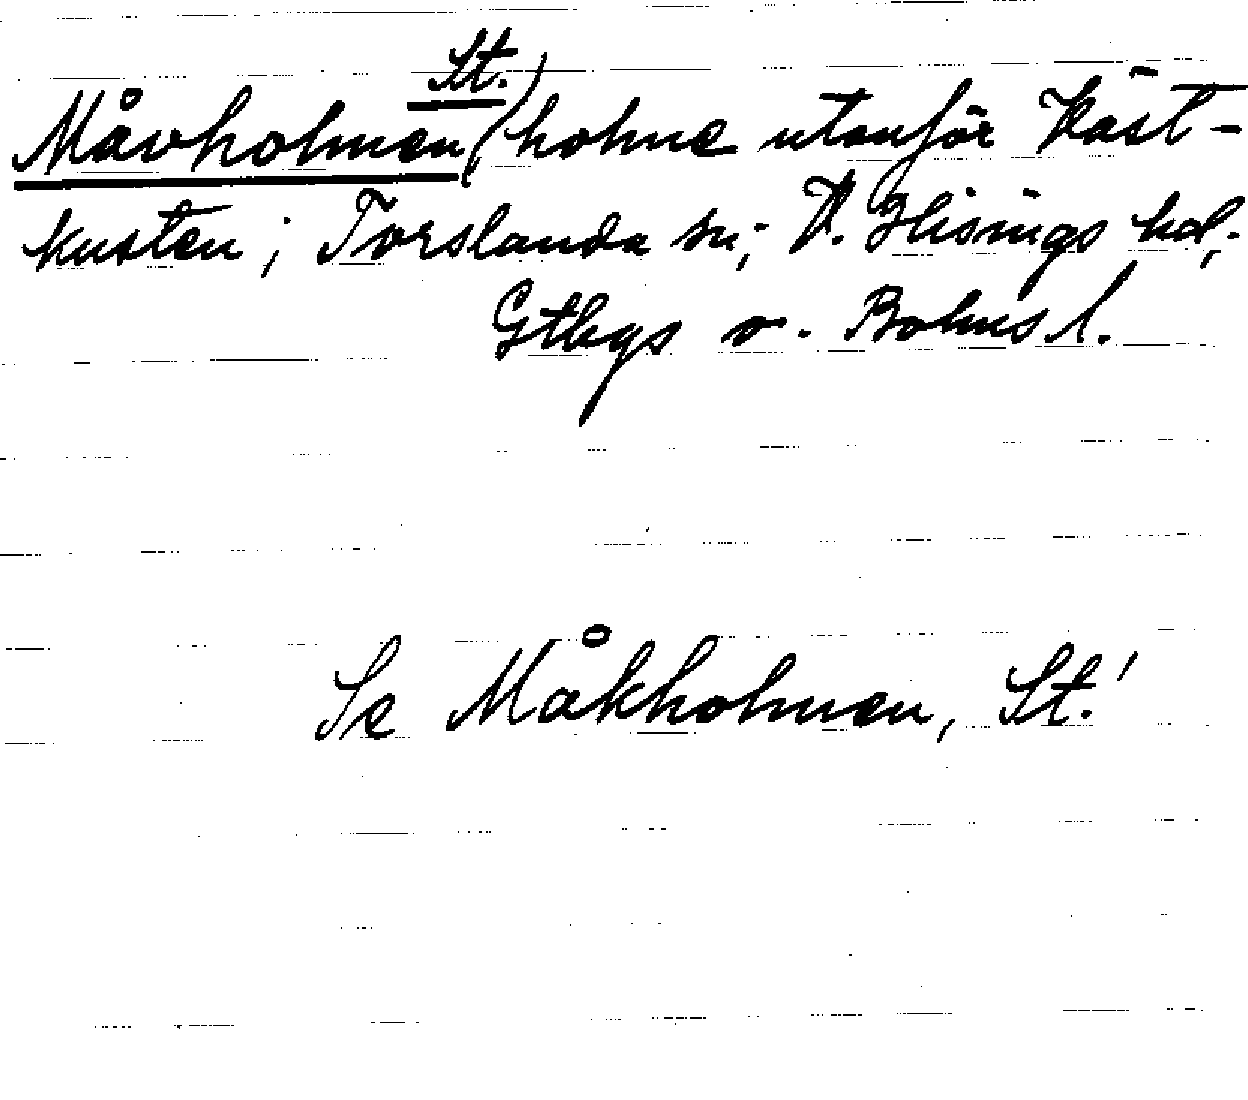 St.
Måvholmen (holme utanför Väst-
kusten; Torslanda sn; V. Hisings hd,
Gtbgs o. Bohus l.
Se Måkholmen, St.!